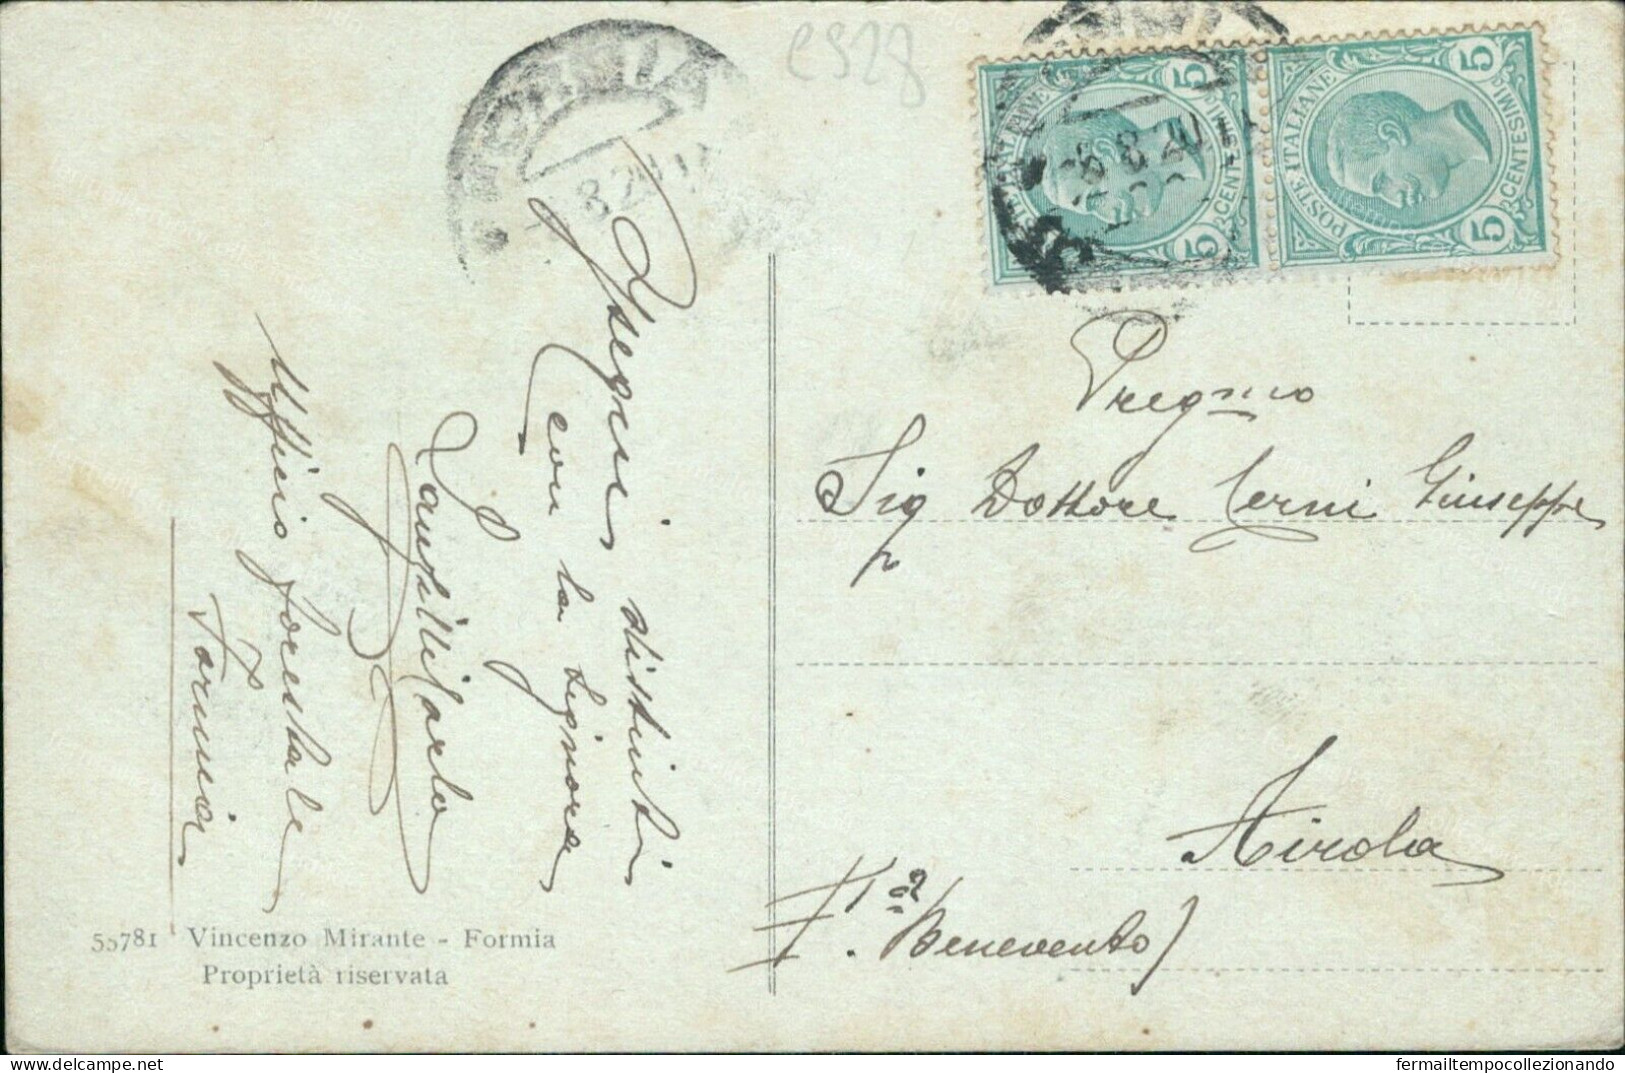 c528
FORMIA
8 20
6 8 20
POSTE ITALIANE
5 CENTESIMI 5
POSTE ITALIANE
5 CENTESIMI 5
Ossequi distinti
con la Signora
Ufficio forestale
Formia
Pregmo
Sig Dottore Cerni Giuseppe
Airola
(Pa
Benevento)
55781 Vincenzo Mirante - Formia
Proprietà riservata
fermailtempocollezionando